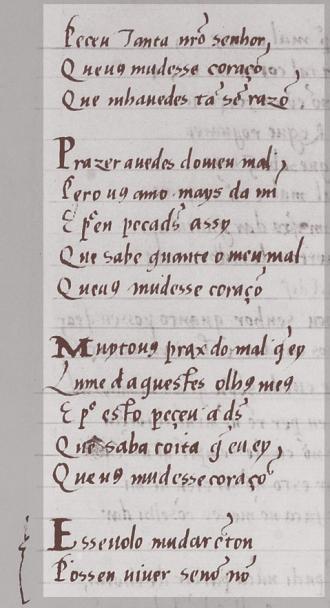 Peceu Janta nrō senhor,
Que uꝯ mudesse coraçō,
Que mhauedes tā sē razō
Prazer auedes do meu mal,
Pero uꝯ amo mays da mī
E pͤen pecads̄ assy
Que sabe quante o meu mal
Que uꝯ mudesse coraçō
Muytouꝯ praz do mal q̄ ey
Lume daquestes olhꝯ meꝯ
E pͤ esto peçeu a ds̄
Que saba coita q̄ eu ey,
Que uꝯ mudesse coraçō
Esseuolo mudar cͤton
Possen uiuer senō nō